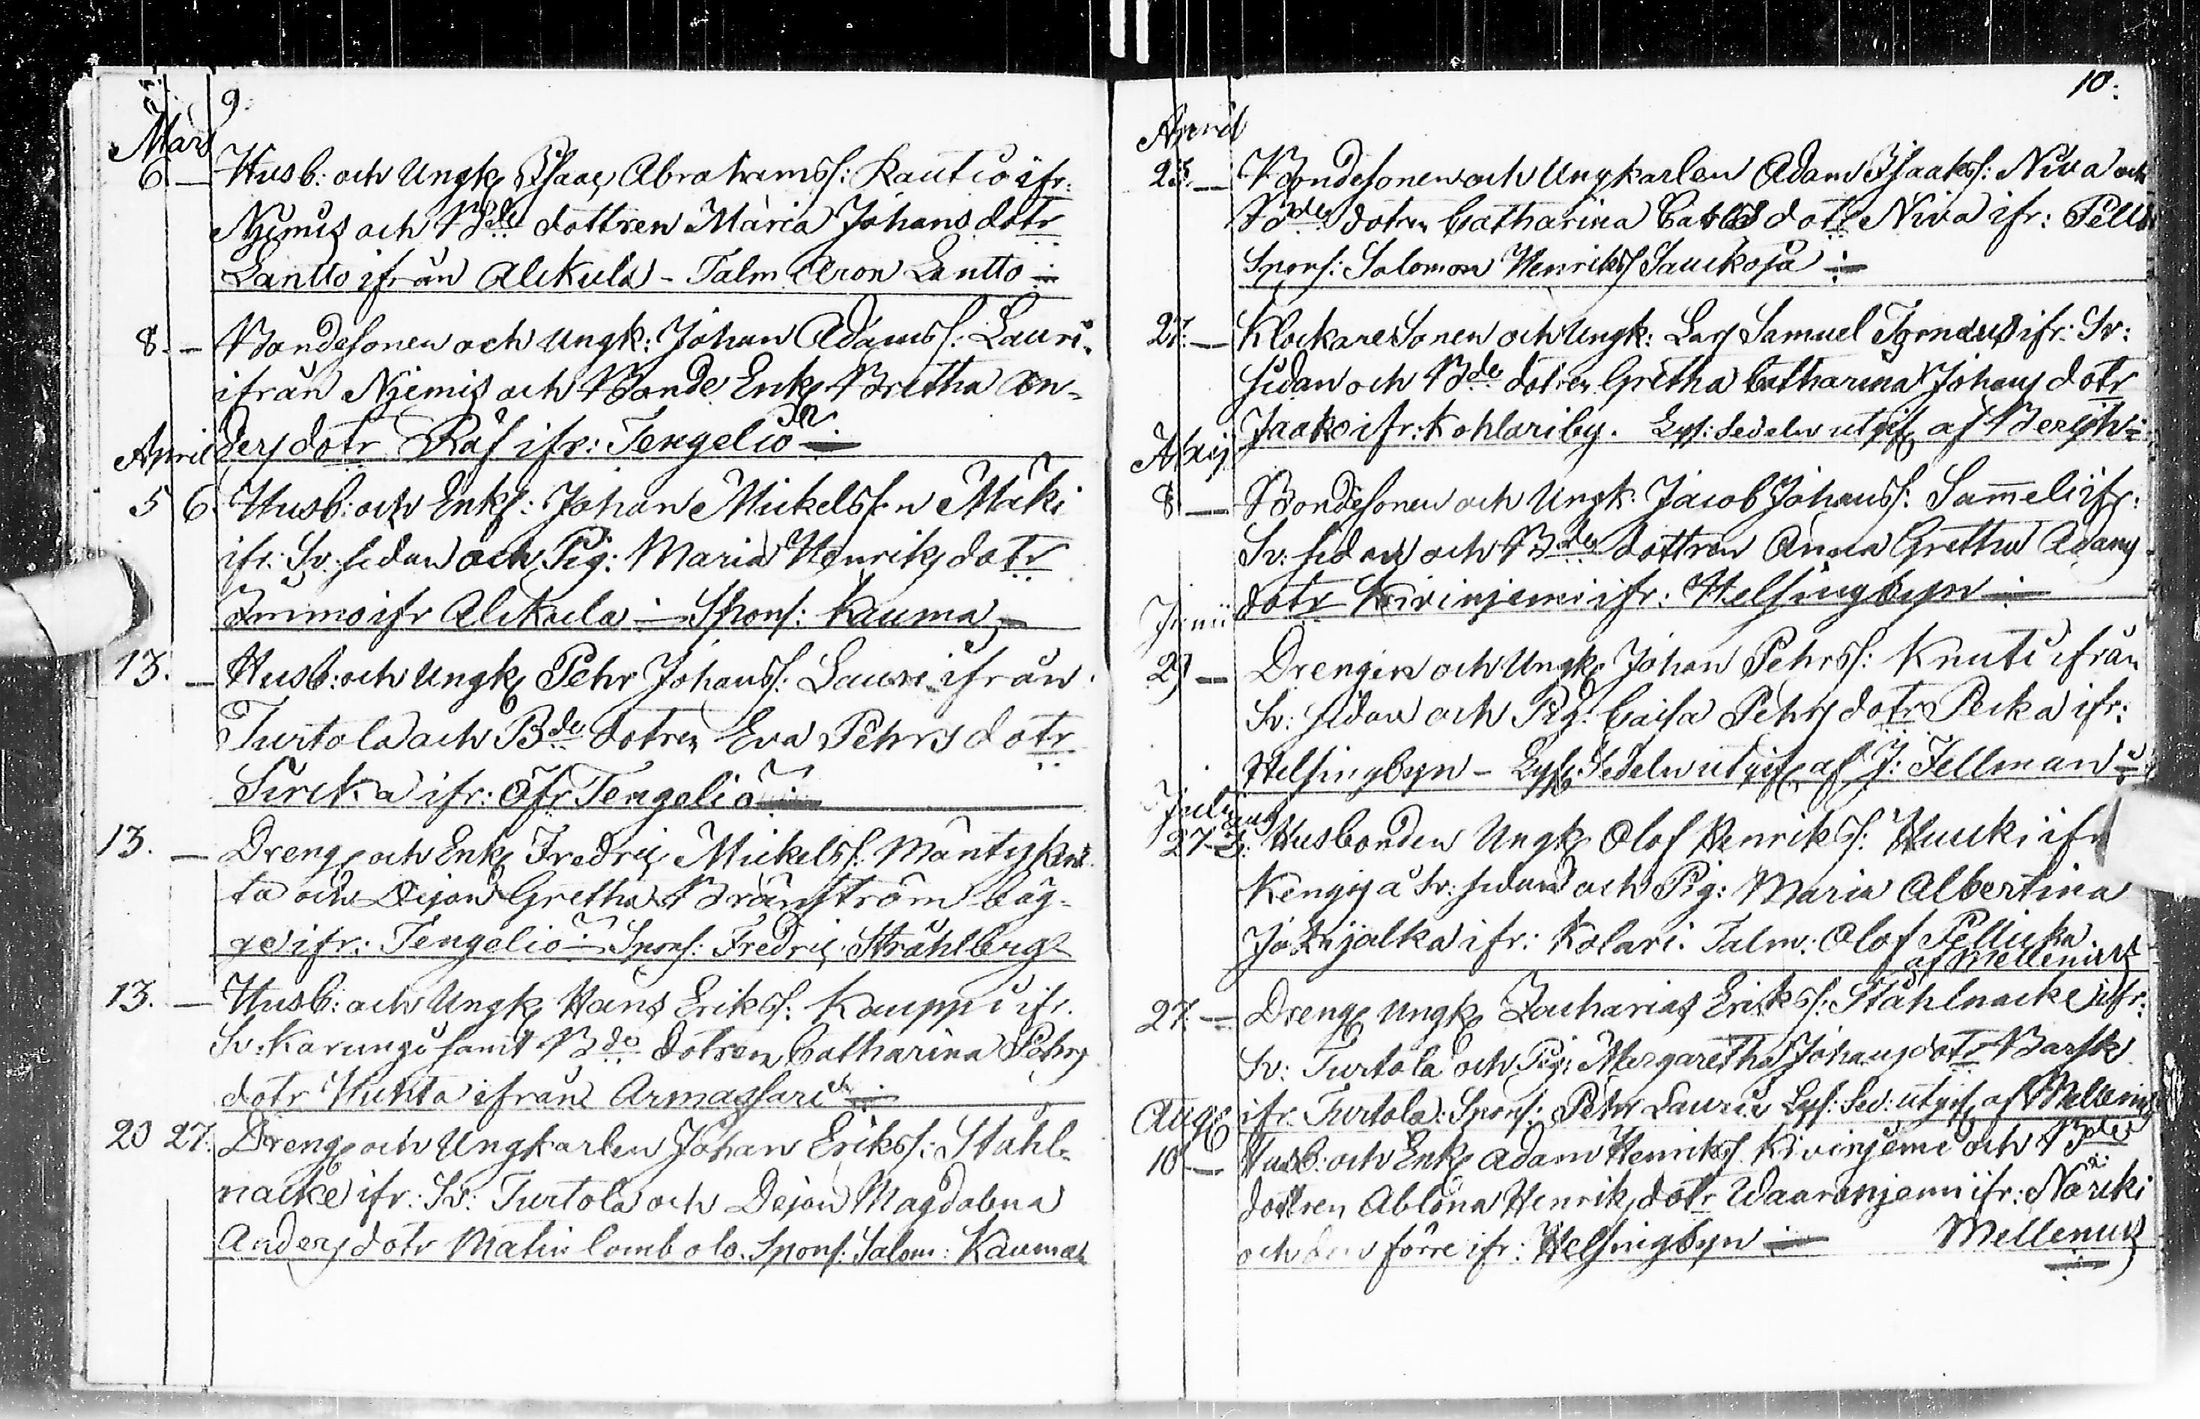 9.
Mars
6. — Husb: och Ungk Isaac Abrahamss: Kautio ifr:
Njemis och Bde dottren Maria Johans dotr
Lantto ifrån Alckula – Talm Aron Lantto
8. — Bondesonen och Ungk: Johan Adamss: Lauri
ifrån Njemis och Bonde Enk Bretha An-
ders dotr Räf ifr: Tengeliö
April
5 6. Husb: och Enkl: Johan Mickelss n Mäki
ifr. Sv. sidan och Pig: Maria Henriks dotr
Immo ifr Alckula — Spons: Kauma
13. — Husb: och Ungk Pehr Johanss: Lauri ifrån
Turtola och Bde dotren Eva Pehrs dotr
Sirkka ifr: Öfr Tengeliö
13. — Dreng och Enk Fredric Mickelss: Mäntyke
ta och Dejan Gretha Brånström båg-
ge ifr: Tengeliö — Spons: Fredric Stråhlberg
13. — Husb: och Ungk Hans Erikss: Kauppi ifr.
Sv: Karungi samt Bde dotren Catharina Pehrs
dotr Huhta ifrån Armassari
20 27. Dreng och Ungkarlen Johan Erikss: Stähl-
nacke ifr: Sv: Turtola och Dejan Magdalena
Anders dotr Matin lombolo. Spons: Salom: Kauma
10.
April
25. — Bondesonen och Ungkarlen Adam Isaakss: Niva och
Bde dotren Catharina Carls dotr Niva ifr: Pello
Spons: Salomon Henrikss Sauckoja
27. — Klockaresonen och Ungk: Lars Samuel Tornæus ifr: Sv:
sidan och Bde dotren Gretha Catharina Johans dotr
Jaako ifr: Kohlariby. Lys: Sedelen utgif af Bergh
Maij
8 — Bondesonen och Ungk: Jacob Johanss: Sammeli ifr:
Sv: sidan och Bde dottren Anna Gretha Adams
dotr Kivinjemi ifr: Helsingbyn
Junii
29 — Drengen och Ungk Johan Pehrss: Knuti ifrån
Sv: sidan och Pig: Caisa Pehrs dotr Pecka ifr:
Helsingbyn – Lys: Sedelen utgif af J: Fellman
Julii
27 3. Husbonden Ungk Olof Henrikss: Hucki ifr
Kengis å Sv: sidan och Pig: Maria Albertina
Johkijalka ifr: Kolari. Talm: Olof Pellicka.
af Mellenius
27. — Dreng Ungk Zacharias Erikss: Stählnacke ifr:
Sv: Turtola och Pig: Margaretha Johans dotr Barsk
ifr. Turtola: Spons: Pehr Lauri Lys: Sed: utgif af Mellenius
Aug
10 — Husb: och Enk Adam Henrikss Kivinjemi och Bde
dottren Ablona Henriks dotr Waaranjemi ifr: Närki
och den förre ifr: Helsingbyn — Mellenius